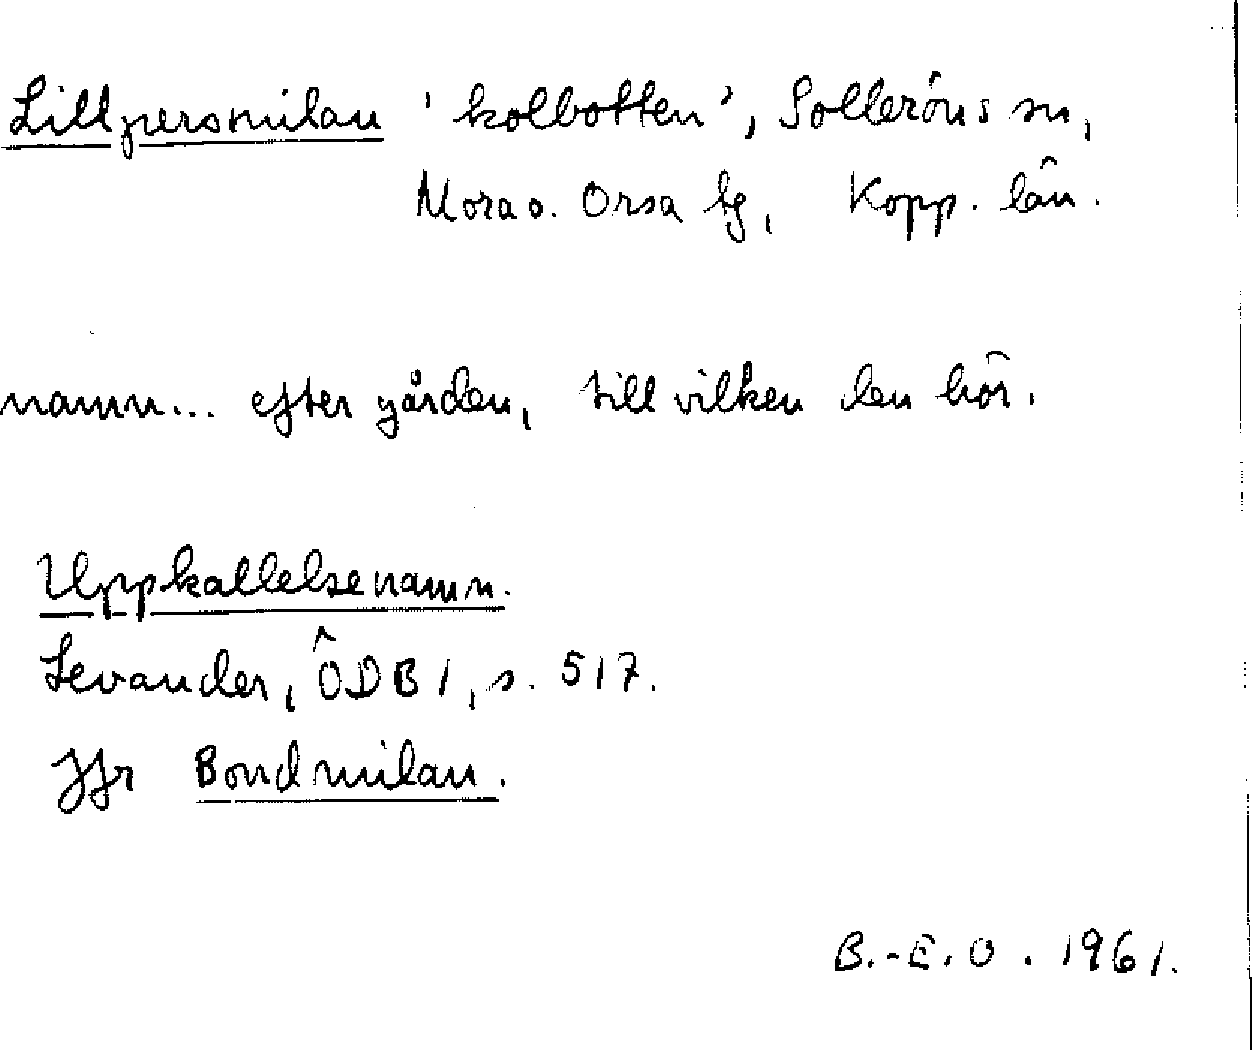 Lillpersmilan 'kolbotten', Solleröns sn,
Mora o. Orsa tg, Kopp. län.
namn... efter gården, till vilken den hör.
Uppkallelsenamn.
Levander, ÖDB 1, s. 517.
Jfr Bondmilan.
B.-E. O. 1961.